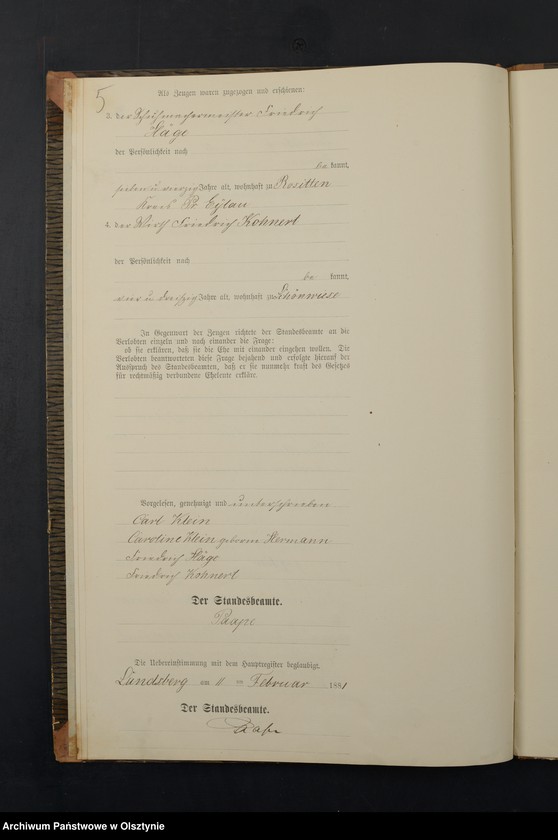 5
Als Zeugen waren zugezogen und erschienen:
3. der Schuhmachermeister Friedrich
Häge
der Persönlichkeit nach
be kannt,
sieben u. vierzig Jahre alt, wohnhaft zu Rositten
Kreis Pr Eylau
4. der Wirth Friedrich Kohnert
der Persönlichkeit nach
be kannt,
vier u. dreißig Jahre alt, wohnhaft zu Schönwiese
In Gegenwart der Zeugen richtete der Standesbeamte an die
Verlobten einzeln und nach einander die Frage:
ob sie erklären, daß sie die Ehe mit einander eingehen wollen. Die
Verlobten beantworteten diese Frage bejahend und erfolgte hierauf der
Ausspruch des Standesbeamten, daß er sie nunmehr kraft des Gesetzes
für rechtmäßig verbundene Eheleute erkläre.
Vorgelesen, genehmigt und unterschrieben
Carl Klein
Caroline Klein geborene Hermann
Friedrich Häge
Friedrich Kohnert
Der Standesbeamte.
Paape
Die Uebereinstimmung mit dem Hauptregister beglaubigt.
Landsberg am 11 ten Februar 1881
Der Standesbeamte.
Paape
Archiwum Państwowe w Olsztynie